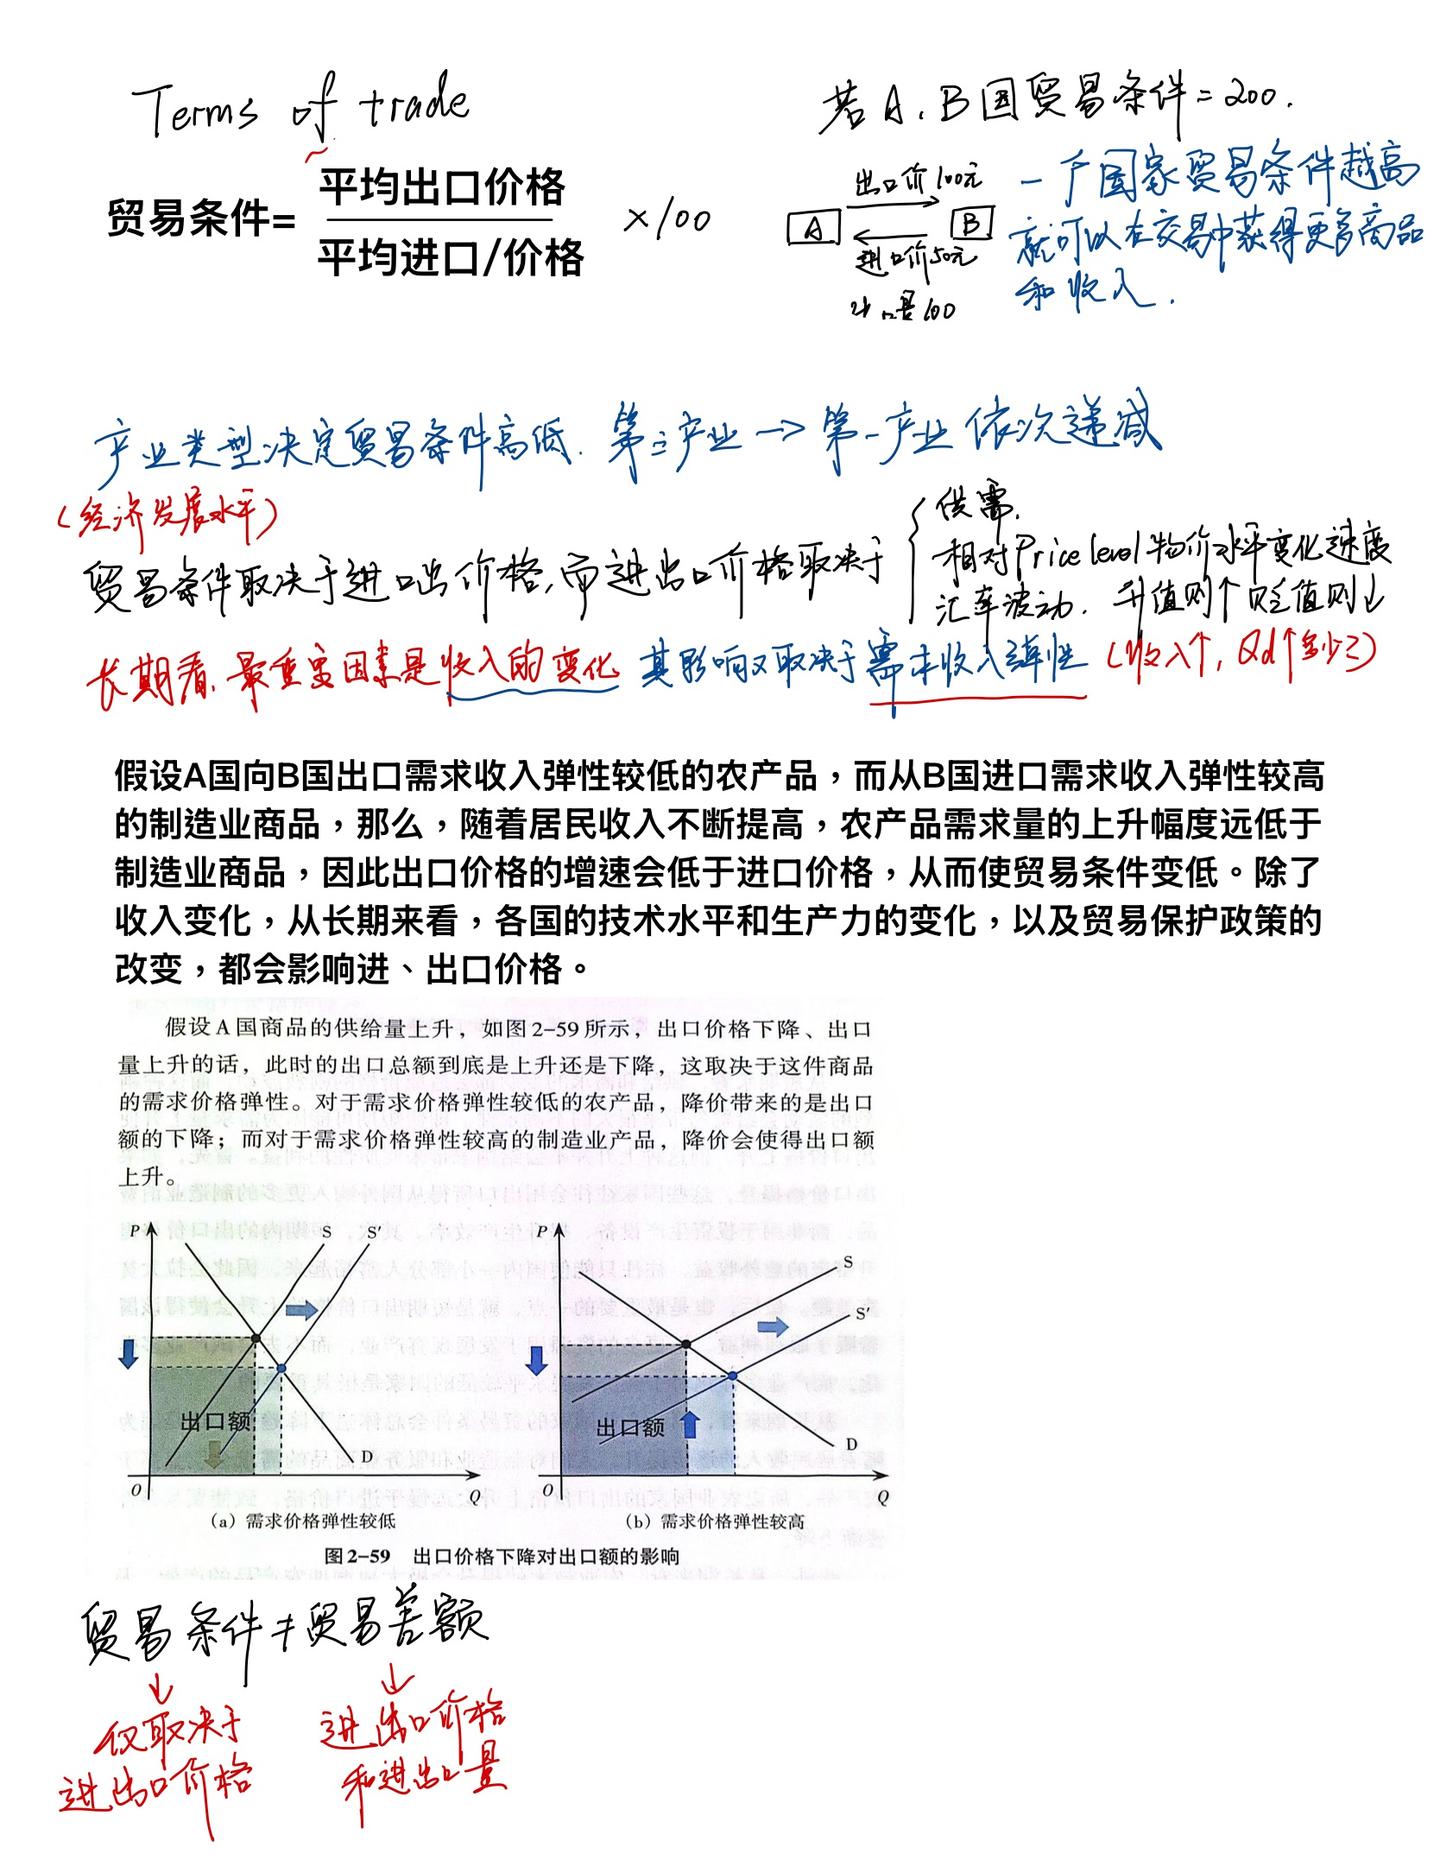 Terms of trade
贸易条件= 平均出口价格
平均进口/价格
×100
若A、B国贸易条件=200.
出口价100元
A B
进口价50元
100
一个国家贸易条件越高
就可以在交易中获得更多商品
和收入.
产业类型决定贸易条件高低. 第三产业→第一产业依次递减
(经济发展水平)
贸易条件取决于进口出价格,而进出口价格取决于
供需.
相对Price level物价水平变化速度
汇率波动. 升值则↑贬值则↓
长期看,最重要因素是收入的变化 其影响又取决于需求收入弹性 (收入↑, Qd↑多少?)
假设A国向B国出口需求收入弹性较低的农产品，而从B国进口需求收入弹性较高
的制造业商品，那么，随着居民收入不断提高，农产品需求量的上升幅度远低于
制造业商品，因此出口价格的增速会低于进口价格，从而使贸易条件变低。除了
收入变化，从长期来看，各国的技术水平和生产力的变化，以及贸易保护政策的
改变，都会影响进、出口价格。
假设A国商品的供给量上升，如图2-59所示，出口价格下降、出口
量上升的话，此时的出口总额到底是上升还是下降，这取决于这件商品
的需求价格弹性。对于需求价格弹性较低的农产品，降价带来的是出口
额的下降；而对于需求价格弹性较高的制造业产品，降价会使得出口额
上升。
P S S'
出口额
D
O Q
（a）需求价格弹性较低
P S
S'
出口额
D
O Q
（b）需求价格弹性较高
图2-59 出口价格下降对出口额的影响
贸易条件≠贸易差额
仅取决于
进出口价格
进出口价格
和进出口量